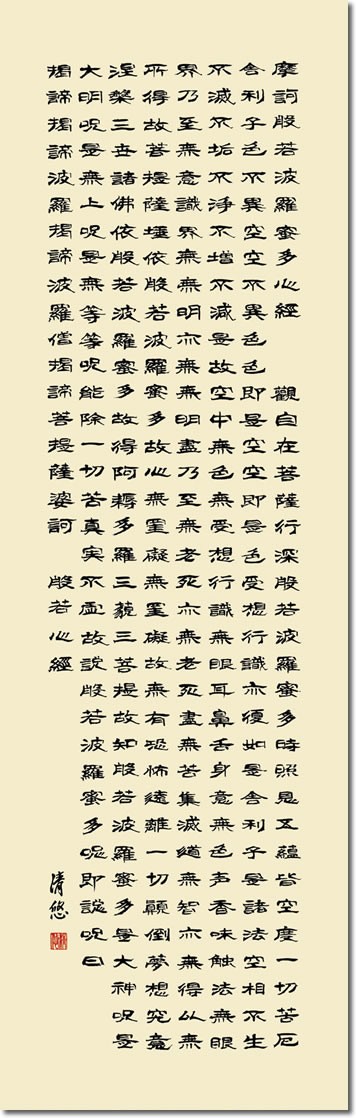 摩訶般若波羅蜜多心經　觀自在菩薩行深般若波羅蜜多時照見五蘊皆空度一切苦厄
舍利子色不異空空不異色色即是空空即是色受想行識亦復如是舍利子是諸法空相不生
不滅不垢不淨不增不減是故空中無色無受想行識無眼耳鼻舌身意無色声香味触法無眼
界乃至無意識界無無明亦無無明盡乃至無老死亦無老死盡無苦集滅道無智亦無得以無
所得故菩提薩埵依般若波羅蜜多故心無罣礙無罣礙故無有恐怖遠離一切顛倒夢想究竟
涅槃三世諸佛依般若波羅蜜多故得阿耨多羅三藐三菩提故知般若波羅蜜多是大神呪是
大明呪是無上呪是無等等呪能除一切苦真実不虚故説般若波羅蜜多呪即説呪曰
揭諦揭諦波羅揭諦波羅僧揭諦菩提薩婆訶　般若心經
清悠